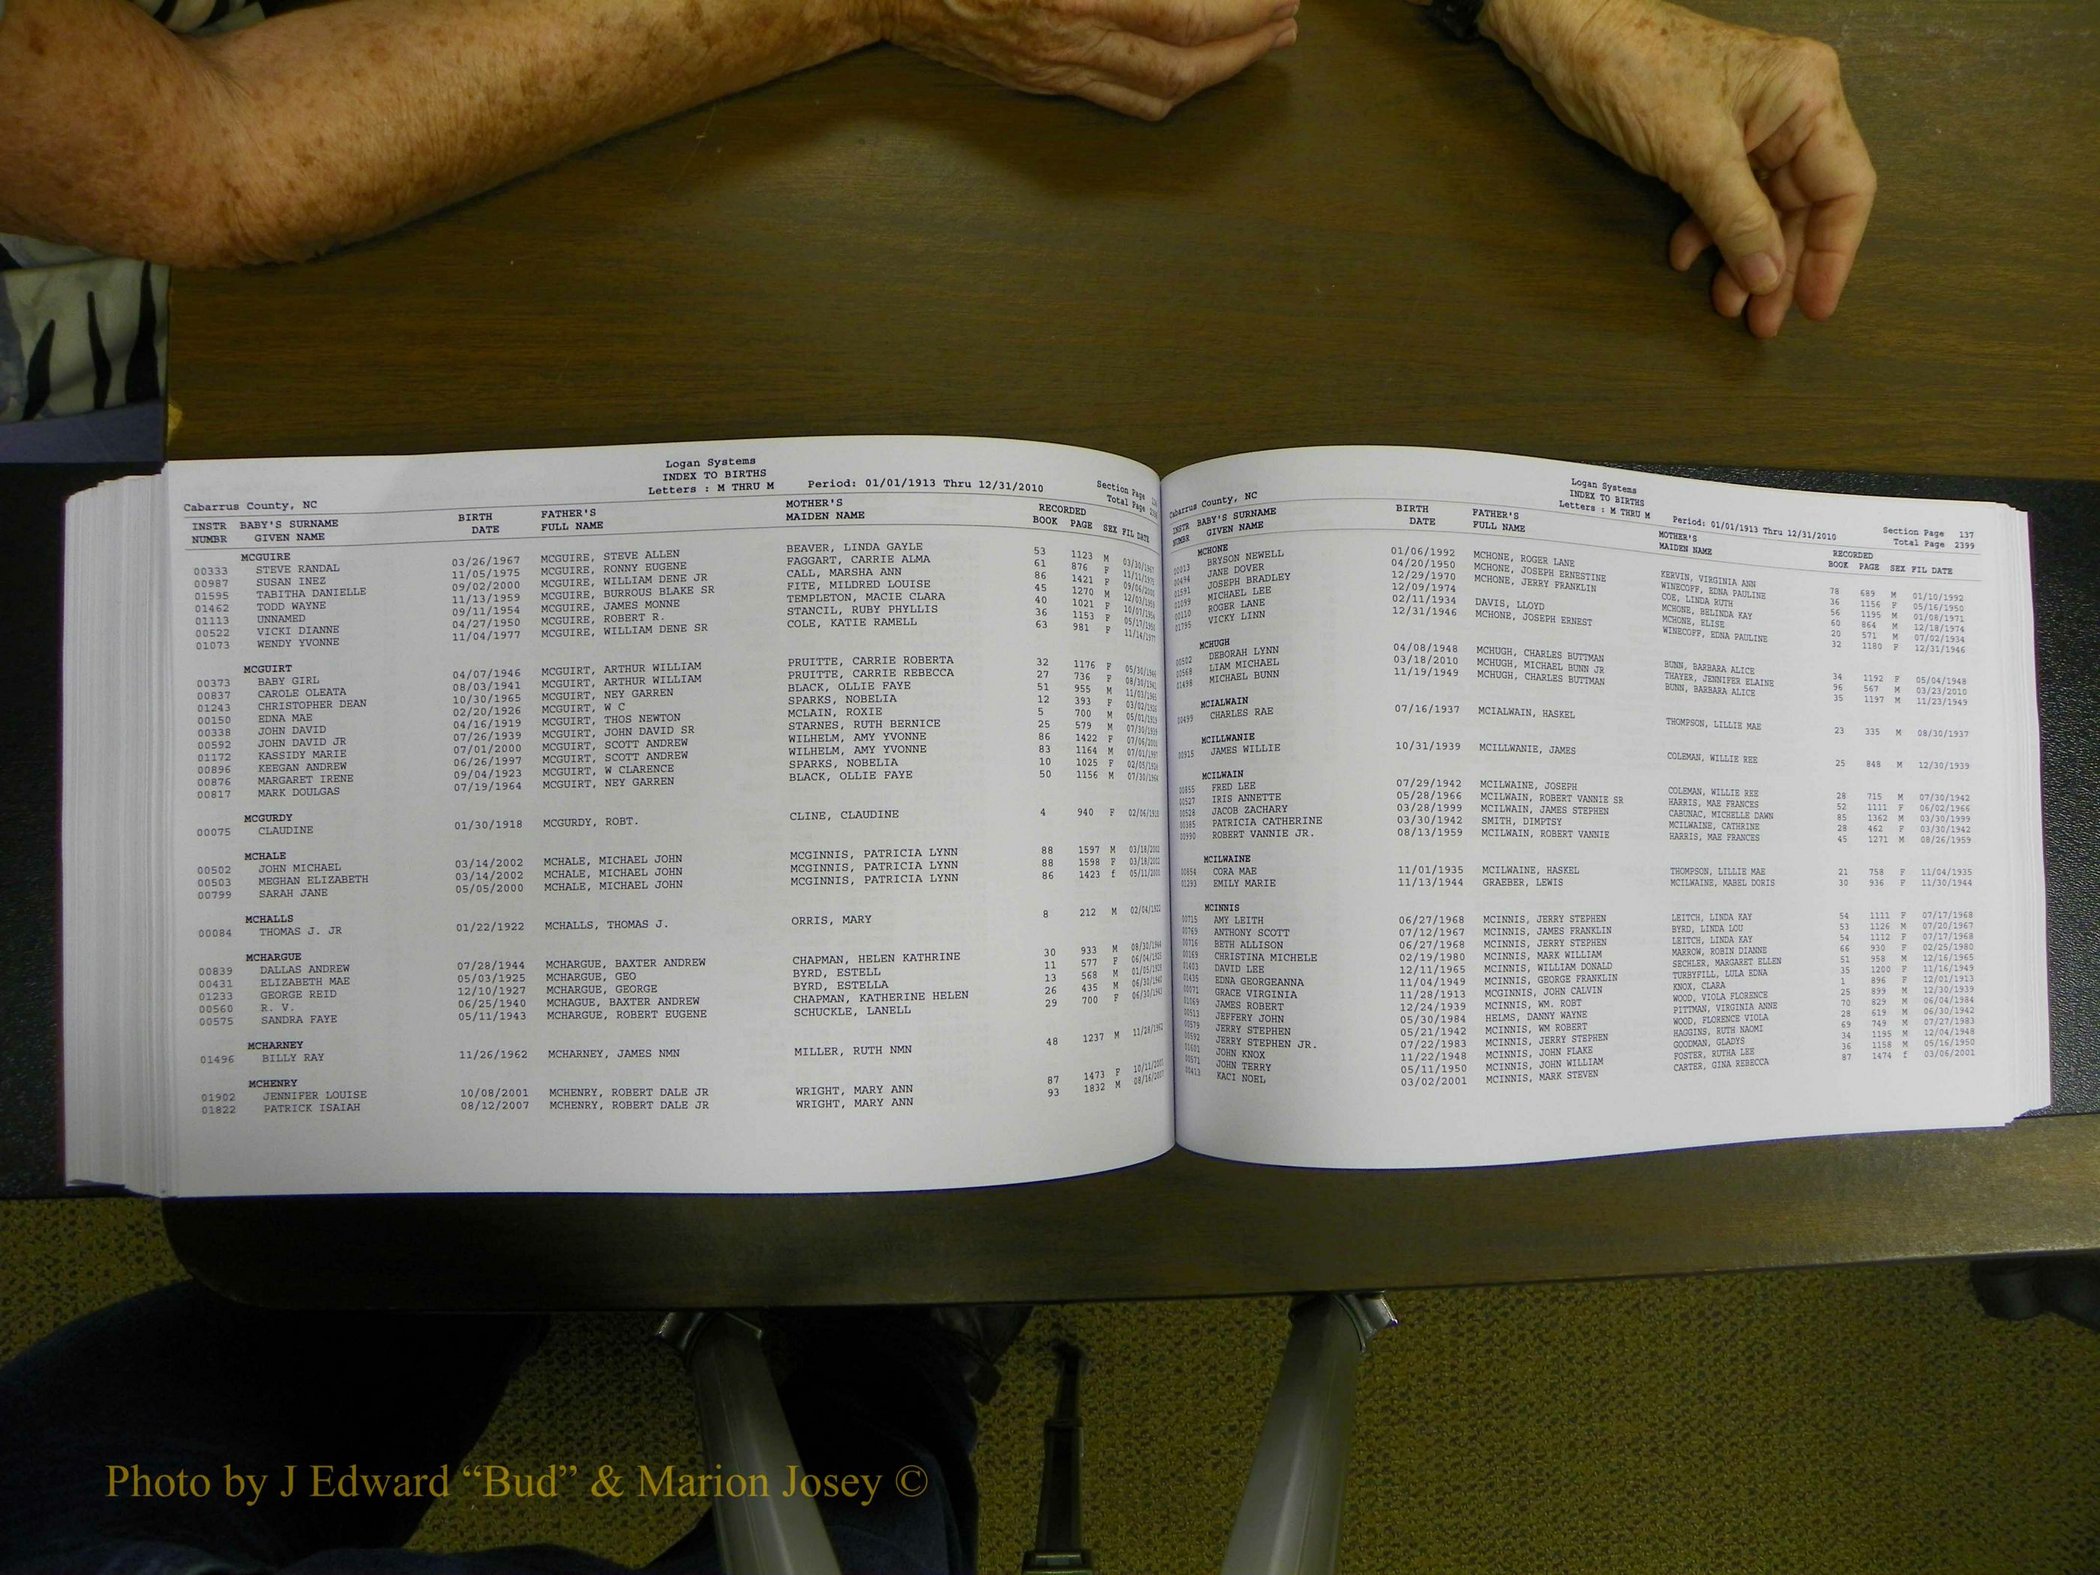 Logan Systems
INDEX TO BIRTHS
Cabarrus County, NC Letters : M THRU M Period: 01/01/1913 Thru 12/31/2010 Section Page
Total Page
INSTR BABY'S SURNAME BIRTH FATHER'S MOTHER'S RECORDED
NUMBR GIVEN NAME DATE FULL NAME MAIDEN NAME BOOK PAGE SEX FIL DATE
MCGUIRE
00333 STEVE RANDAL 03/26/1967 MCGUIRE, STEVE ALLEN BEAVER, LINDA GAYLE 53 1123 M 03/30/1967
00987 SUSAN INEZ 11/05/1975 MCGUIRE, RONNY EUGENE FAGGART, CARRIE ALMA 61 876 F 11/11/1975
01595 TABITHA DANIELLE 09/02/2000 MCGUIRE, WILLIAM DENE JR CALL, MARSHA ANN 86 1421 F 09/06/2000
01462 TODD WAYNE 11/13/1959 MCGUIRE, BURROUS BLAKE SR FITE, MILDRED LOUISE 45 1270 M 12/03/1959
01113 UNNAMED 09/11/1954 MCGUIRE, JAMES MONNE TEMPLETON, MACIE CLARA 40 1021 F 10/07/1954
00522 VICKI DIANNE 04/27/1950 MCGUIRE, ROBERT R. STANCIL, RUBY PHYLLIS 36 1153 F 05/17/1950
01073 WENDY YVONNE 11/04/1977 MCGUIRE, WILLIAM DENE SR COLE, KATIE RAMELL 63 981 F 11/14/1977
MCGUIRT
00373 BABY GIRL 04/07/1946 MCGUIRT, ARTHUR WILLIAM PRUITTE, CARRIE ROBERTA 32 1176 F 05/30/1946
00837 CAROLE OLEATA 08/03/1941 MCGUIRT, ARTHUR WILLIAM PRUITTE, CARRIE REBECCA 27 736 F 08/30/1941
01243 CHRISTOPHER DEAN 10/30/1965 MCGUIRT, NEY GARREN BLACK, OLLIE FAYE 51 955 M 11/03/1965
00150 EDNA MAE 02/20/1926 MCGUIRT, W C SPARKS, NOBELIA 12 393 F 03/02/1926
00338 JOHN DAVID 04/16/1919 MCGUIRT, THOS NEWTON MCLAIN, ROXIE 5 700 M 05/01/1919
00592 JOHN DAVID JR 07/26/1939 MCGUIRT, JOHN DAVID SR STARNES, RUTH BERNICE 25 579 M 07/30/1939
01172 KASSIDY MARIE 07/01/2000 MCGUIRT, SCOTT ANDREW WILHELM, AMY YVONNE 86 1422 F 07/06/2000
00896 KEEGAN ANDREW 06/26/1997 MCGUIRT, SCOTT ANDREW WILHELM, AMY YVONNE 83 1164 M 07/01/1997
00876 MARGARET IRENE 09/04/1923 MCGUIRT, W CLARENCE SPARKS, NOBELIA 10 1025 F
00817 MARK DOULGAS 07/19/1964 MCGUIRT, NEY GARREN BLACK, OLLIE FAYE 50 1156 M 07/30/1964
MCGURDY
00075 CLAUDINE 01/30/1918 MCGURDY, ROBT. CLINE, CLAUDINE 4 940 F
MCHALE
00502 JOHN MICHAEL 03/14/2002 MCHALE, MICHAEL JOHN MCGINNIS, PATRICIA LYNN 88 1597 M 03/18/2002
00503 MEGHAN ELIZABETH 03/14/2002 MCHALE, MICHAEL JOHN MCGINNIS, PATRICIA LYNN 88 1598 F 03/18/2002
00799 SARAH JANE 05/05/2000 MCHALE, MICHAEL JOHN MCGINNIS, PATRICIA LYNN 86 1423 f
MCHALLS
00084 THOMAS J. JR 01/22/1922 MCHALLS, THOMAS J. ORRIS, MARY 8 212 M 02/04/1922
MCHARGUE
00839 DALLAS ANDREW 07/28/1944 MCHARGUE, BAXTER ANDREW CHAPMAN, HELEN KATHRINE 30 933 M 08/30/1944
00431 ELIZABETH MAE 05/03/1925 MCHARGUE, GEO BYRD, ESTELL 11 577 F 06/04/1925
01233 GEORGE REID 12/10/1927 MCHARGUE, GEORGE BYRD, ESTELLA 13 568 M 01/05/1928
00560 R. V. 06/25/1940 MCHAGUE, BAXTER ANDREW CHAPMAN, KATHERINE HELEN 26 435 M 06/30/1940
00575 SANDRA FAYE 05/11/1943 MCHARGUE, ROBERT EUGENE SCHUCKLE, LANELL 29 700 F 06/30/1943
MCHARNEY
01496 BILLY RAY 11/26/1962 MCHARNEY, JAMES NMN MILLER, RUTH NMN 48 1237 M 11/28/1962
MCHENRY
01902 JENNIFER LOUISE 10/08/2001 MCHENRY, ROBERT DALE JR WRIGHT, MARY ANN 87 1473 F 10/11/2001
01822 PATRICK ISAIAH 08/12/2007 MCHENRY, ROBERT DALE JR WRIGHT, MARY ANN 93 1832 M 08/16/2007
Logan Systems
INDEX TO BIRTHS
Cabarrus County, NC Letters : M THRU M Period: 01/01/1913 Thru 12/31/2010 Section Page 137
Total Page 2399
INSTR BABY'S SURNAME BIRTH FATHER'S MOTHER'S RECORDED
NUMBR GIVEN NAME DATE FULL NAME MAIDEN NAME BOOK PAGE SEX FIL DATE
MCHONE
00013 BRYSON NEWELL 01/06/1992 MCHONE, ROGER LANE KERVIN, VIRGINIA ANN 78 689 M 01/10/1992
00494 JANE DOVER 04/20/1950 MCHONE, JOSEPH ERNESTINE WINECOFF, EDNA PAULINE 36 1156 F 05/16/1950
01591 JOSEPH BRADLEY 12/29/1970 MCHONE, JERRY FRANKLIN COE, LINDA RUTH 56 1195 M 01/08/1971
01099 MICHAEL LEE 12/09/1974 MCHONE, BELINDA KAY 60 864 M 12/18/1974
00110 ROGER LANE 02/11/1934 DAVIS, LLOYD MCHONE, ELISE 20 571 M 07/02/1934
01795 VICKY LINN 12/31/1946 MCHONE, JOSEPH ERNEST WINECOFF, EDNA PAULINE 32 1180 F 12/31/1946
MCHUGH
00502 DEBORAH LYNN 04/08/1948 MCHUGH, CHARLES BUTTMAN BUNN, BARBARA ALICE 34 1192 F 05/04/1948
00568 LIAM MICHAEL 03/18/2010 MCHUGH, MICHAEL BUNN JR THAYER, JENNIFER ELAINE 96 567 M 03/23/2010
01498 MICHAEL BUNN 11/19/1949 MCHUGH, CHARLES BUTTMAN BUNN, BARBARA ALICE 35 1197 M 11/23/1949
MCIALWAIN
00499 CHARLES RAE 07/16/1937 MCIALWAIN, HASKEL THOMPSON, LILLIE MAE 23 335 M 08/30/1937
MCILLWANIE
00915 JAMES WILLIE 10/31/1939 MCILLWANIE, JAMES COLEMAN, WILLIE REE 25 848 M 12/30/1939
MCILWAIN
00855 FRED LEE 07/29/1942 MCILWAIN, JOSEPH COLEMAN, WILLIE REE 28 715 M 07/30/1942
00527 IRIS ANNETTE 05/28/1966 MCILWAIN, ROBERT VANNIE SR HARRIS, MAE FRANCES 52 1111 F 06/02/1966
00528 JACOB ZACHARY 03/28/1999 MCILWAIN, JAMES STEPHEN CABUNAC, MICHELLE DAWN 85 1362 M 03/30/1999
00385 PATRICIA CATHERINE 03/30/1942 SMITH, DIMPTSY MCILWAINE, CATHRINE 28 462 F 03/30/1942
00990 ROBERT VANNIE JR. 08/13/1959 MCILWAIN, ROBERT VANNIE HARRIS, MAE FRANCES 45 1271 M 08/26/1959
MCILWAINE
00854 CORA MAE 11/01/1935 MCILWAINE, HASKEL THOMPSON, LILLIE MAE 21 758 F 11/04/1935
01293 EMILY MARIE 11/13/1944 GRAEBER, LEWIS MCILWAINE, MABEL DORIS 30 936 F 11/30/1944
MCINNIS
00715 AMY LEITH 06/27/1968 MCINNIS, JERRY STEPHEN LEITCH, LINDA KAY 54 1111 F 07/17/1968
00769 ANTHONY SCOTT 07/12/1967 MCINNIS, JAMES FRANKLIN BYRD, LINDA LOU 53 1126 M 07/20/1967
00716 BETH ALLISON 06/27/1968 MCINNIS, JERRY STEPHEN LEITCH, LINDA KAY 54 1112 F 07/17/1968
00169 CHRISTINA MICHELE 02/19/1980 MCINNIS, MARK WILLIAM MARROW, ROBIN DIANNE 66 930 F 02/25/1980
01403 DAVID LEE 12/11/1965 MCINNIS, WILLIAM DONALD SECHLER, MARGARET ELLEN 51 958 M 12/16/1965
01435 EDNA GEORGEANNA 11/04/1949 MCINNIS, GEORGE FRANKLIN TURBYFILL, LULA EDNA 35 1200 F 11/16/1949
00071 GRACE VIRGINIA 11/28/1913 MCGINNIS, JOHN CALVIN KNOX, CLARA 1 896 F 12/01/1913
01069 JAMES ROBERT 12/24/1939 MCINNIS, WM. ROBT WOOD, VIOLA FLORENCE 25 899 M 12/30/1939
00513 JEFFERY JOHN 05/30/1984 HELMS, DANNY WAYNE PITTMAN, VIRGINIA ANNE 70 829 M 06/04/1984
00579 JERRY STEPHEN 05/21/1942 MCINNIS, WM ROBERT WOOD, FLORENCE VIOLA 28 619 M 06/30/1942
00592 JERRY STEPHEN JR. 07/22/1983 MCINNIS, JERRY STEPHEN HAGGINS, RUTH NAOMI 69 749 M 07/27/1983
01601 JOHN KNOX 11/22/1948 MCINNIS, JOHN FLAKE GOODMAN, GLADYS 34 1195 M 12/04/1948
00571 JOHN TERRY 05/11/1950 MCINNIS, JOHN WILLIAM FOSTER, RUTHA LEE 36 1158 M 05/16/1950
00413 KACI NOEL 03/02/2001 MCINNIS, MARK STEVEN CARTER, GINA REBECCA 87 1474 f 03/06/2001
Photo by J Edward “Bud” & Marion Josey ©